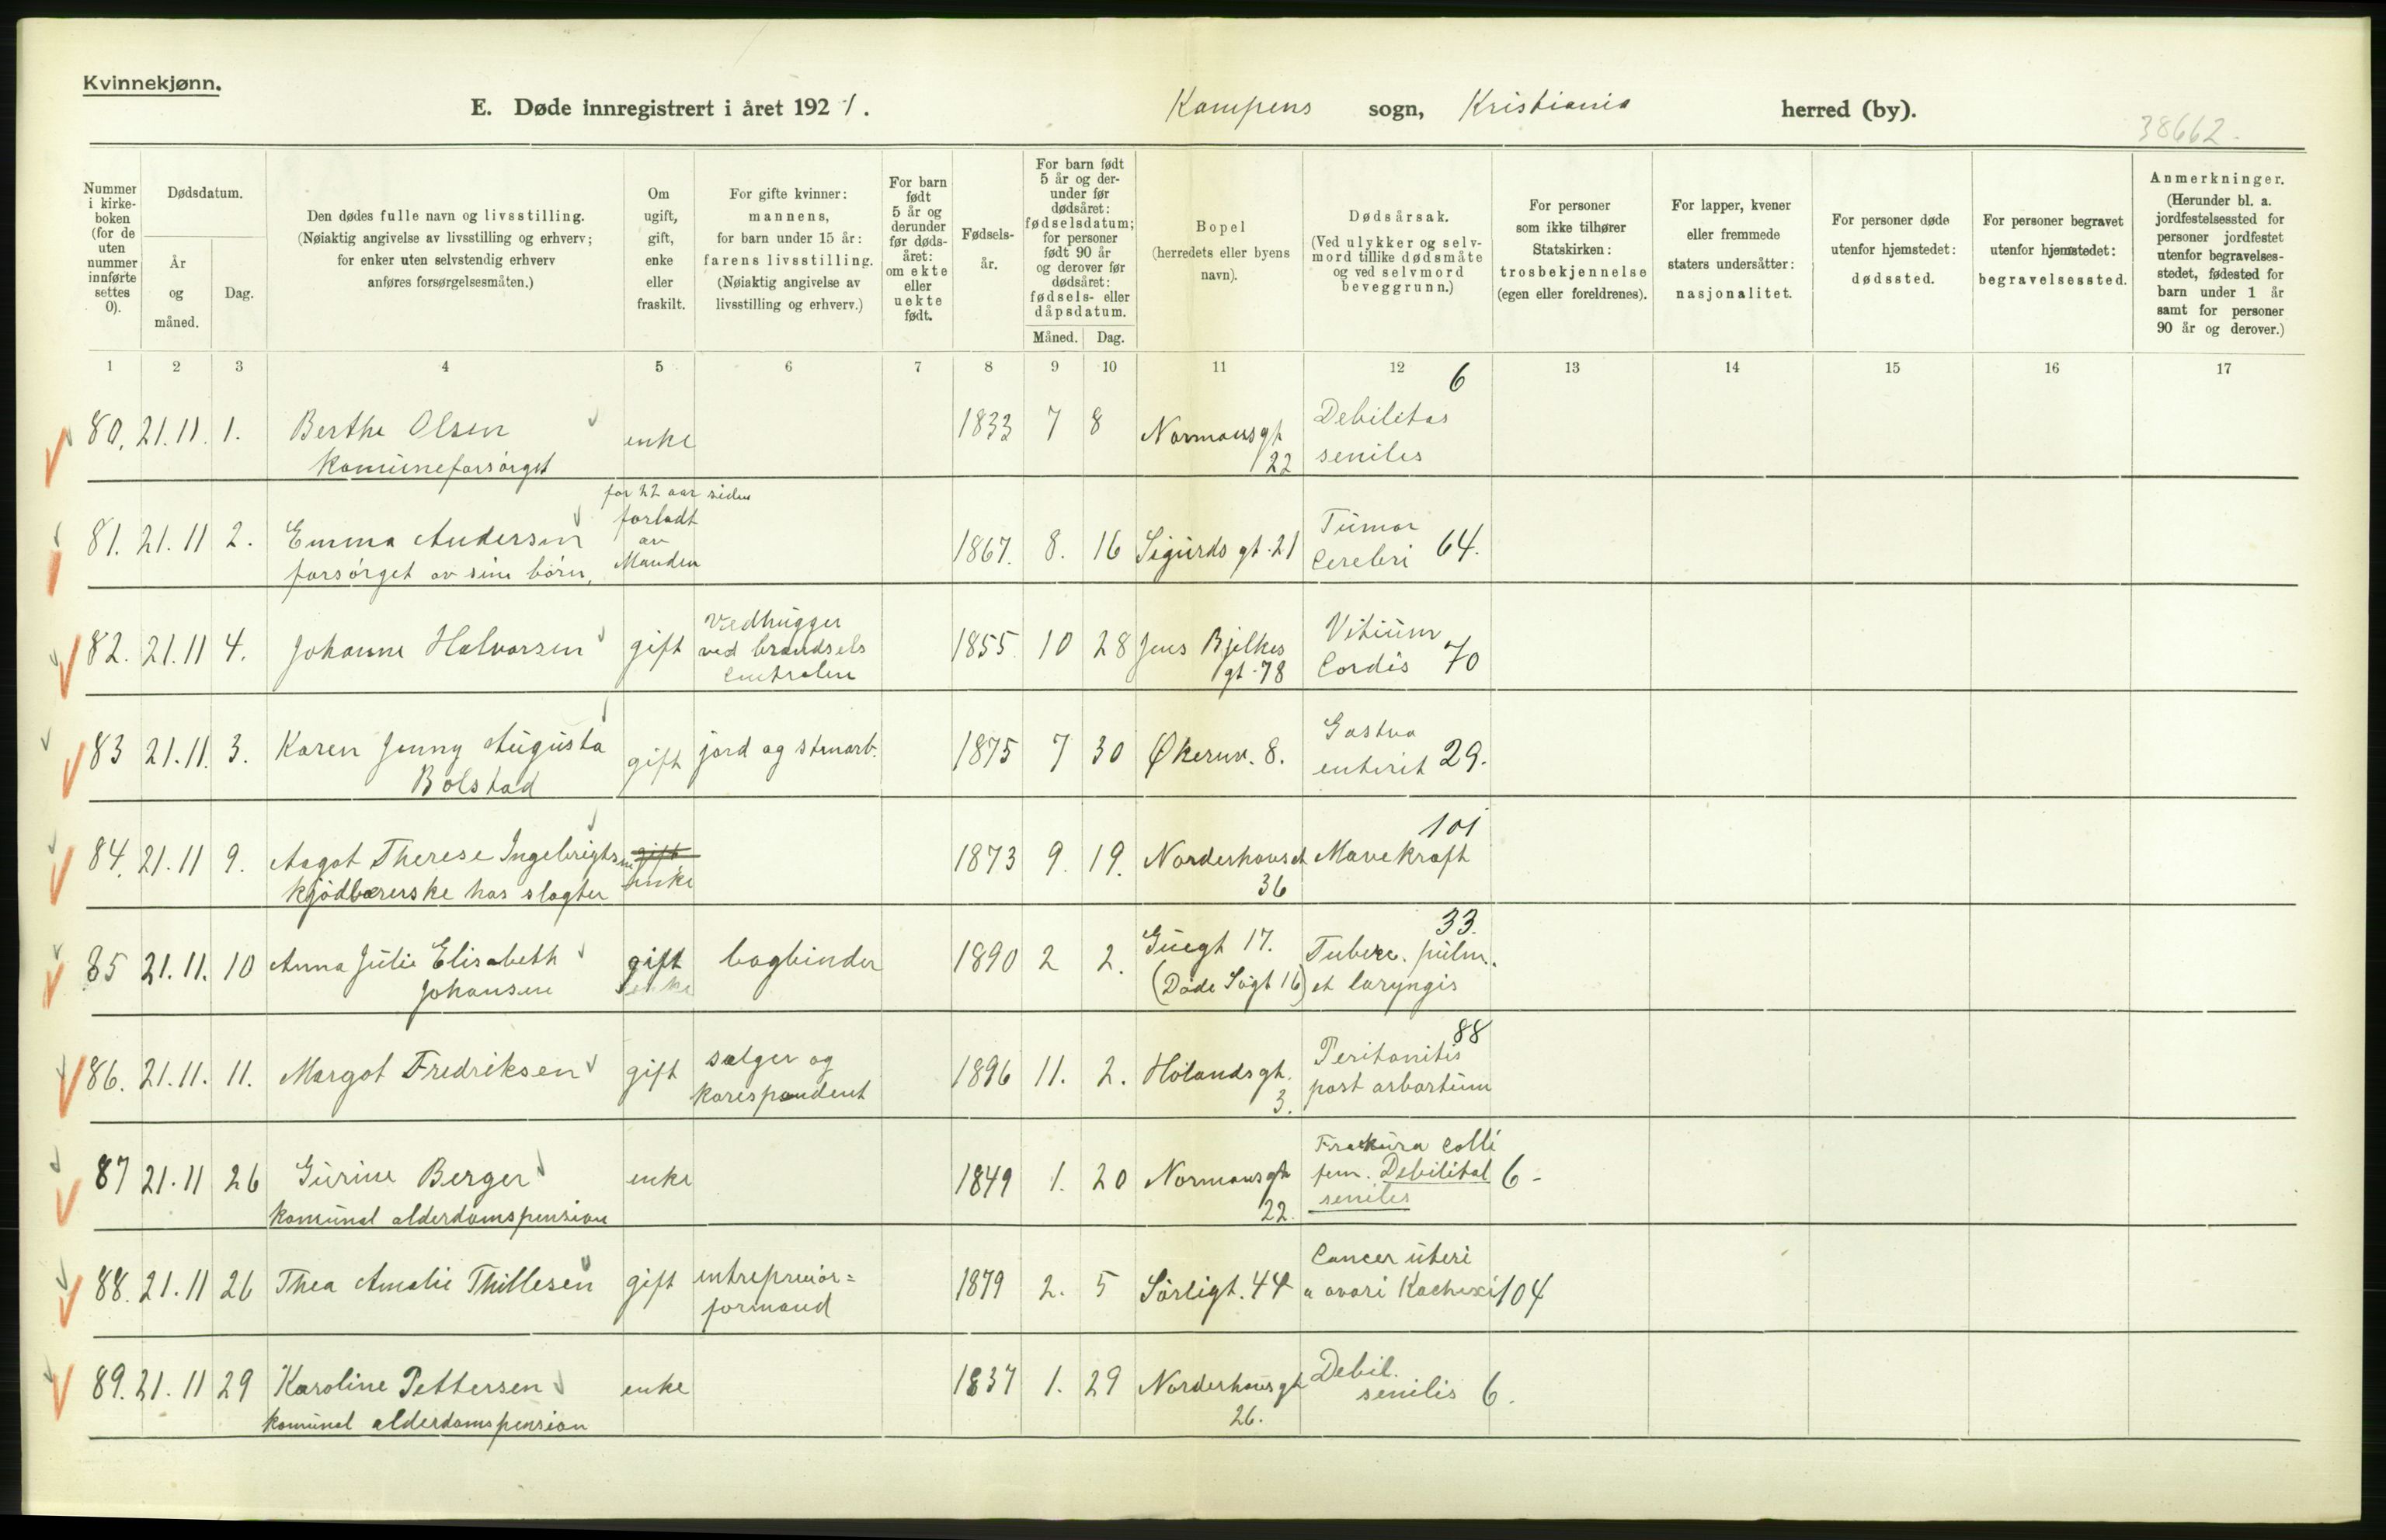 Kvinnekjønn.
E. Døde innregistrert i året 1921. Kampens sogn, Kristiania herred (by).
38662.
Nummer i kirkeboken (for de uten nummer innførte settes 0).
Dødsdatum.
År og måned.
Dag.
Den dødes fulle navn og livsstilling.
(Nøiaktig angivelse av livsstilling og erhverv;
for enker uten selvstendig erhverv
anføres forsørgelsesmåten.)
Om ugift, gift, enke eller fraskilt.
For gifte kvinner:
mannens,
for barn under 15 år:
farens livsstilling.
(Nøiaktig angivelse av
livsstilling og erhverv.)
For barn født 5 år og derunder før dødsåret: om ekte eller uekte født.
Fødselsår.
For barn født 5 år og derunder før dødsåret: fødselsdatum; for personer født 90 år og derover før dødsåret: fødsels- eller dåpsdatum.
Måned. Dag.
Bopel
(herredets eller byens
navn).
Dødsårsak.
(Ved ulykker og selvmord tillike dødsmåte og ved selvmord beveggrunn.)
For personer
som ikke tilhører
Statskirken:
trosbekjennelse
(egen eller foreldrenes).
For lapper, kvener
eller fremmede
staters undersåtter:
nasjonalitet.
For personer døde
utenfor hjemstedet:
dødssted.
For personer begravet
utenfor hjemstedet:
begravelsessted.
Anmerkninger.
(Herunder bl. a.
jordfestelsessted for
personer jordfestet
utenfor begravelsesstedet, fødested for
barn under 1 år
samt for personer
90 år og derover.)
1 2 3 4 5 6 7 8 9 10 11 12 13 14 15 16 17
80. 21.11. 1. Berthe Olsen enke 1833 7 8 Normansgt 22 Debilitas seniles 6
Komuneforsørget
81. 21.11 2. Emma Andersen for 22 aar siden forladt av Manden 1867. 8. 16 Sigurds gt. 21 Tumor Cerebri 64.
forsørget av sine børn.
82. 21.11 4. Johanne Halvorsen gift Vedhugger ved brændsels centralen 1855 10 28 Jens Bjelkes gt. 78 Vitium Cordis 70
83 21.11. 3. Karen Jenny Augusta Bolstad gift jord og stenarb. 1875 7 30 Økernv. 8. Gastro enterit 29.
84. 21.11 9. Aagot Therese Ingebrigtsen gift enke 1873 9. 19. Norderhovsgt 36 Mavekræft 101
kjødbærerske hos slagter
85 21.11. 10 Anna Julie Elisabeth Johansen gift enke bogbinder 1890 2 2. Guegt 17. (Døde Sògt 16) Tuberc. pulm. et laryngis 33.
86. 21.11. 11. Margot Fredriksen gift sælger og korespondent 1896 11. 2. Hølandsgt. 3. Peritonitis post arbortum 88
87 21.11 26 Gurine Berger enke 1849 1. 20 Normansgt 22. Fraktura Colli fem. Debilital seniles 6-
komunal alderdomspension
88. 21.11 26 Thea Amalie Thillesen gift entreprenør= formand 1879 2. 5 Sørligt. 44 Cancer uteri a ovari Kachexi 104
89. 21.11 29 Karoline Pettersen enke 1837 1. 29 Norderhovsgt 26. Debil. senilis 6.
komunal alderdomspension